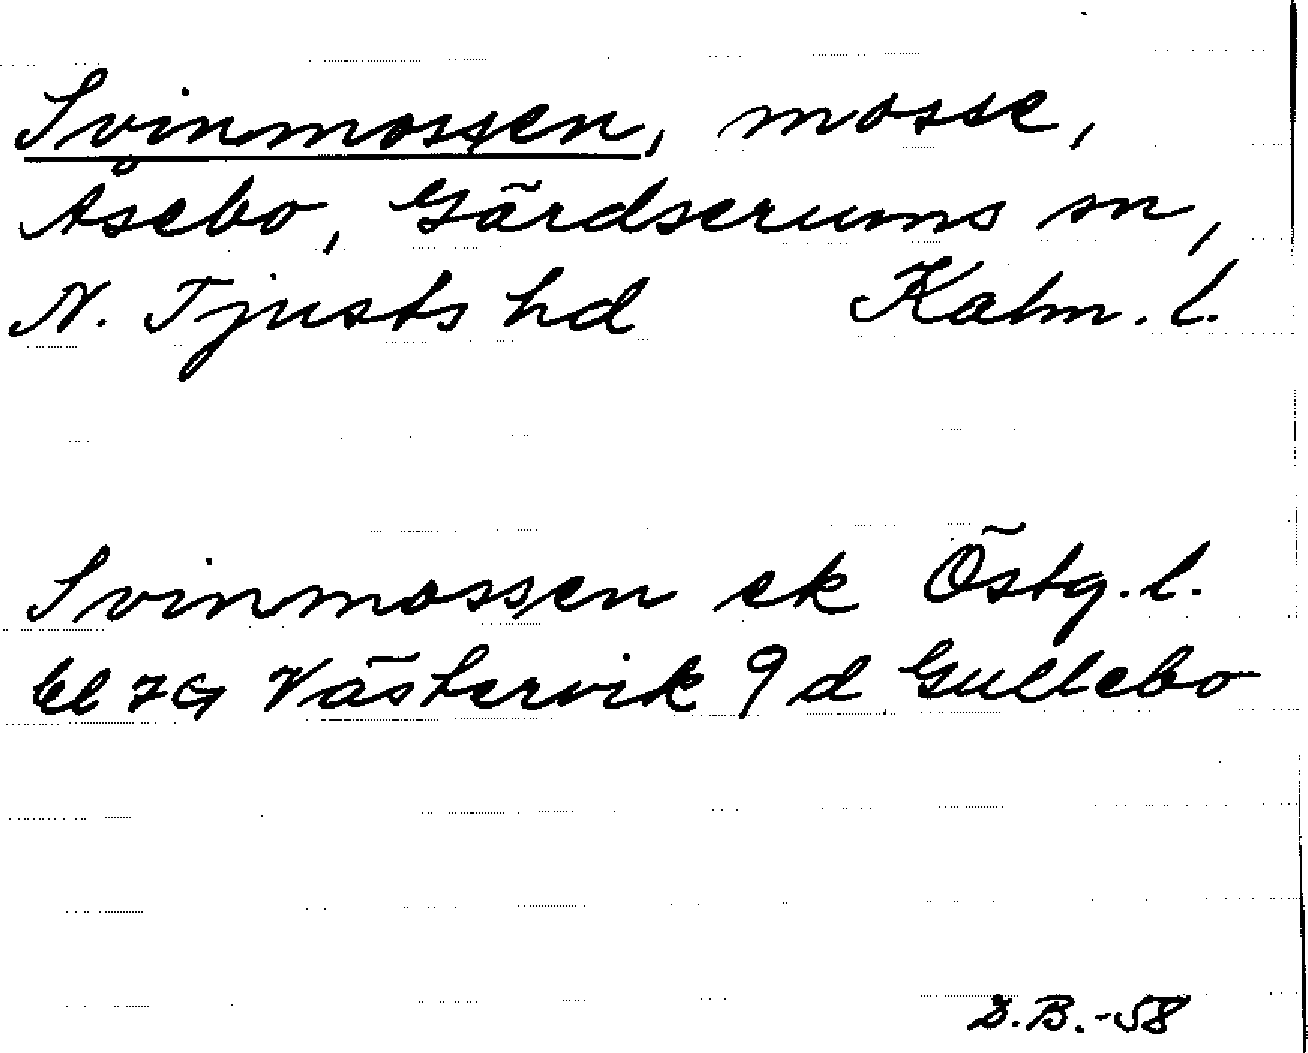 Svinmossen, mosse,
Åsebo, Gärdserums sn,
N. Tjusts hd Kalm. l.
Svinmossen ek Östg. l.
bl 7G Västervik 9d Gullebo
B.-58